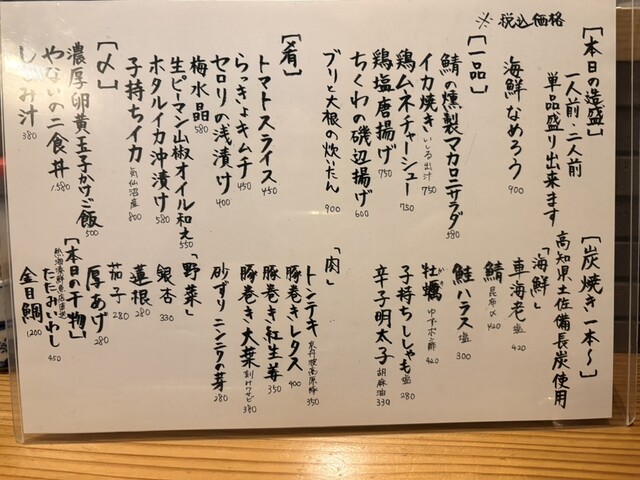 ※税込価格
【本日の造盛】
一人前・二人前
単品盛り出来ます
海鮮なめろう 900
【一品】
鯖の燻製マカロニサラダ 580
イカ焼き いしる出汁 750
鶏ムネチャーシュー 750
鶏塩唐揚げ 750
ちくわの磯辺揚げ 600
ブリと大根の炊いたん 900
【肴】
トマトスライス 450
らっきょキムチ 450
セロリの浅漬け 400
梅水晶 580
生ピーマン山椒オイル和え 550
ホタルイカ沖漬け 580
子持ちイカ 気仙沼産 800
【〆】
濃厚卵黄玉子かけご飯 500
やないの二食丼 1,580
しじみ汁 380
【炭焼き一本〜】
高知県土佐備長炭使用
「海鮮」
車海老 塩 420
鯖 昆布〆 420
鮭ハラス 塩 300
牡蠣 かき ゆずポン酢 420
子持ちししゃも 塩 280
辛子明太子 胡麻油 330
「肉」
トンテキ 京丹波高原豚 350
豚巻きレタス 400
豚巻き紅生姜 350
豚巻き大葉 刻みワサビ 380
砂ずりニンニクの芽 280
「野菜」
銀杏 330
蓮根 280
茄子 280
厚あげ 280
【本日の干物】
たたみいわし 450
金目鯛 1200